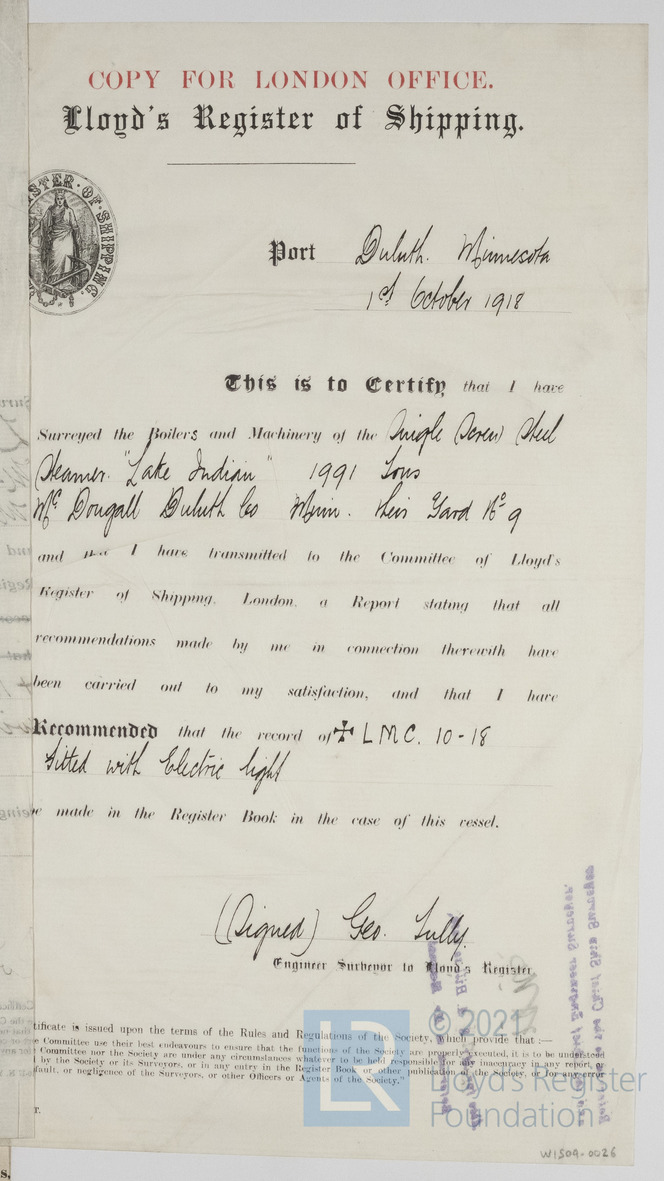 COPY FOR LONDON OFFICE.
Lloyd's Register of Shipping.
STER · OF · SHIPPING.
Port Duluth. Minnesota
1st October 1918
This is to Certify, that I have
Surveyed the Boilers and Machinery of the Single Screw Steel
Steamer. "Lake Indian" 1991 Tons
Mc Dougall Duluth Co Minn. their Yard No 9
and that I have transmitted to the Committee of Lloyd's
Register of Shipping, London, a Report stating that all
recommendations made by me in connection therewith have
been carried out to my satisfaction, and that I have
Recommended that the record of ✠ L M C. 10-18
fitted with Electric light
e made in the Register Book in the case of this vessel.
(Signed) Geo. Lully.
Engineer Surveyor to Lloyd's Register
tificate is issued upon the terms of the Rules and Regulations of the Society, which provide that :—
e Committee use their best endeavours to ensure that the functions of the Society are properly executed, it is to be understood
Committee nor the Society are under any circumstances whatever to be held responsible for any inaccuracy in any report
by the Society or its Surveyors, or in any entry in the Register Book or other publication of the Society, or for any error
fault, or negligence of the Surveyors, or other Officers or Agents of the Society."
r.
© 2021
LR
Lloyd's Register
Foundation
W1509-0026
s,